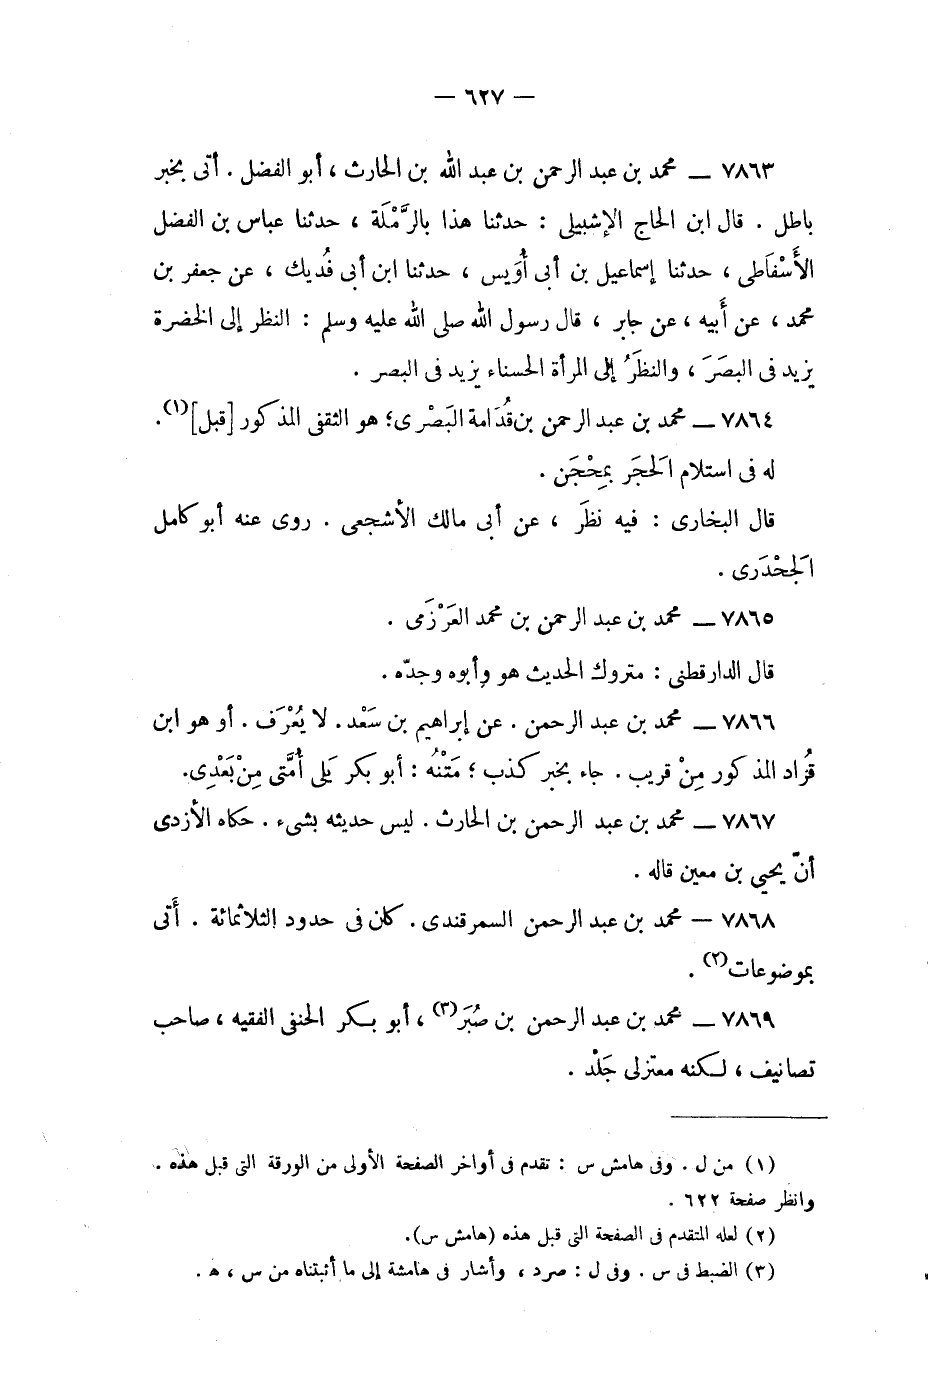 — ٦٢٧ —
٧٨٦٣ — محمد بن عبد الرحمن بن عبد الله بن الحارث ، أبو الفضل . أتى بخبر
باطل . قال ابن الحاج الإشبيلى : حدثنا هذا بالرَّمْلَة ، حدثنا عباس بن الفضل
الأَسْفَاطى ، حدثنا إسماعيل بن أبى أُوَيس ، حدثنا ابن أبى فُديك ، عن جعفر بن
محمد ، عن أَبيه ، عن جابر ، قال رسول الله صلى الله عليه وسلم : النظر إلى الخضرة
يزيد فى البصَرَ ، والنظَرُ إلى المرأة الحسناء يزيد فى البصر .
٧٨٦٤ — محمد بن عبد الرحمن بن قُدَامة البَصْرى؛ هو الثقفى المذكور [قبل](١).
له فى استلام الَحجَر بمِحْجَن .
قال البخارى : فيه نظَر ، عن أبى مالك الأشجعى . روى عنه أبو كامل
الَجحْدَرى .
٧٨٦٥ — محمد بن عبد الرحمن بن محمد العَرْزَمى .
قال الدارقطنى : متروك الحديث هو وأبوه وجدّه .
٧٨٦٦ — محمد بن عبد الرحمن . عن إبراهيم بن سَعْد. لا يُعْرَف . أو هو ابن
قُراد المذكور مِنْ قريب . جاء بخبر كذب ؛ مَتْنُه : أبو بكر يَلى أُمَّتى مِنْ بَعْدِى.
٧٨٦٧ — محمد بن عبد الرحمن بن الحارث . ليس حديثه بشىء . حكاه الأزدى
أنّ يحيي بن معين قاله .
٧٨٦٨ — محمد بن عبد الرحمن السمرقندى . كان فى حدود الثلاثمائة . أَتى
بموضوعات(٢) .
٧٨٦٩ — محمد بن عبد الرحمن بن صُبَر(٣) ، أبو بكر الحنفى الفقيه ، صاحب
تصانيف ، لكنه معتزلى جَلْد .
(١) من ل . وفى هامش س : تقدم فى أواخر الصفحة الأولى من الورقة التى قبل هذه .
وانظر صفحة ٦٢٢ .
(٢) لعله المتقدم فى الصفحة التى قبل هذه (هامش س).
(٣) الضبط فى س . وفى ل : صرد ، وأشار فى هامشة إلى ما أثبتناه من س ، ه .